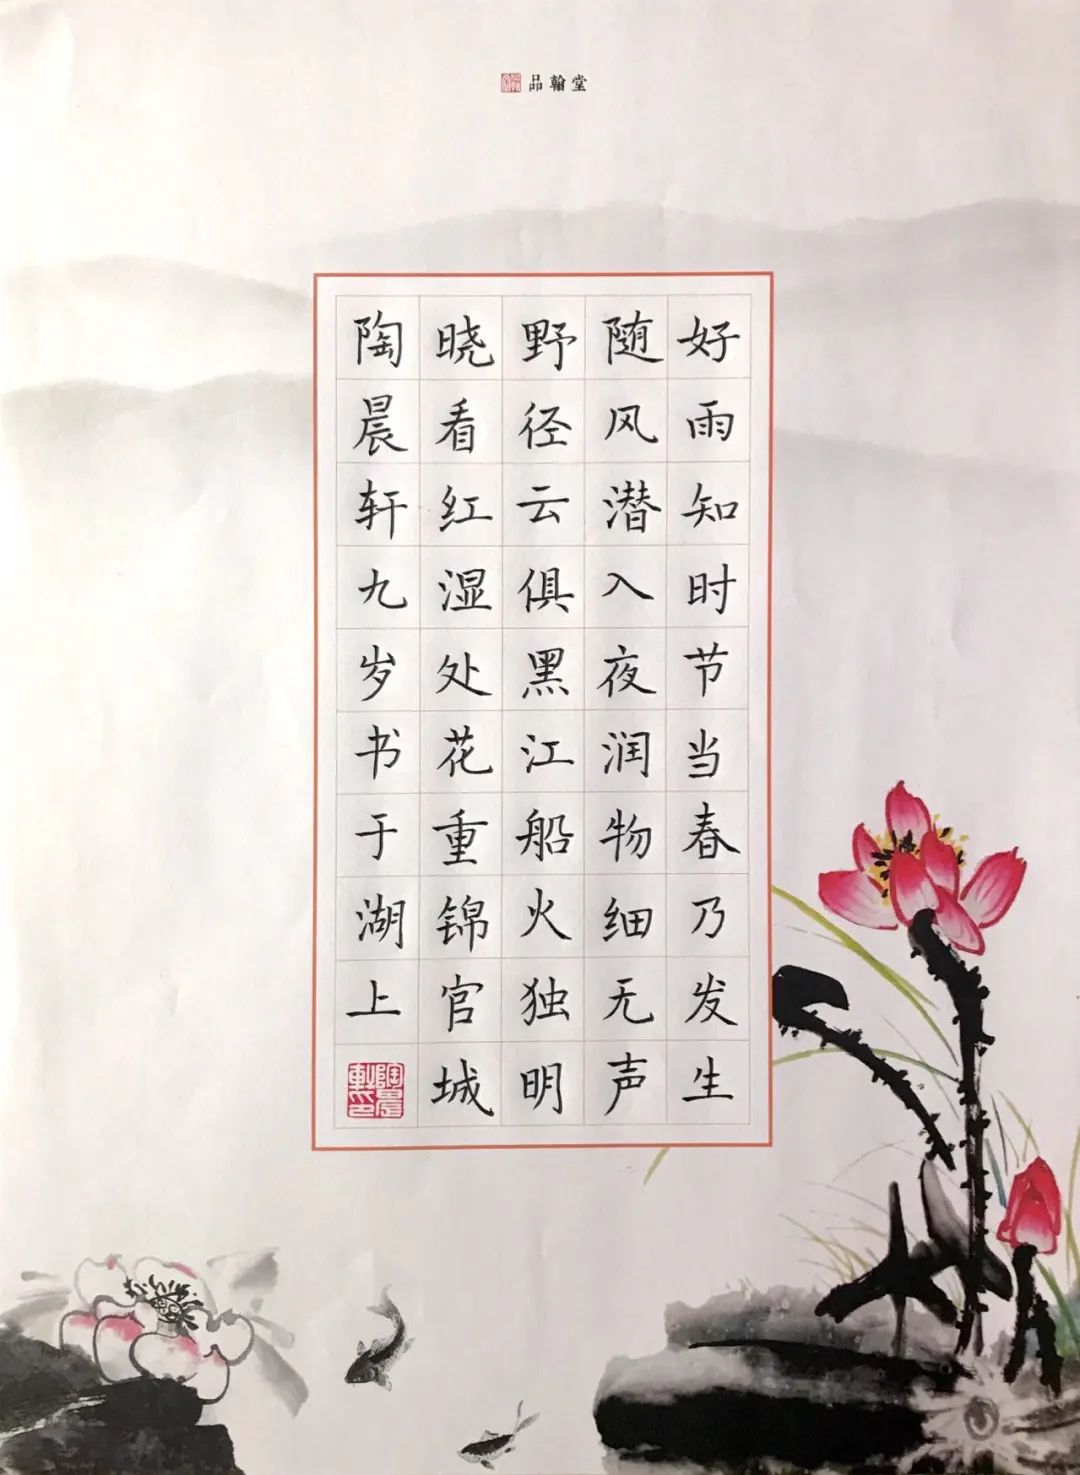 品翰堂
好雨知时节当春乃发生
随风潜入夜润物细无声
野径云俱黑江船火独明
晓看红湿处花重锦官城
陶晨轩九岁书于湖上
陶晨軒印